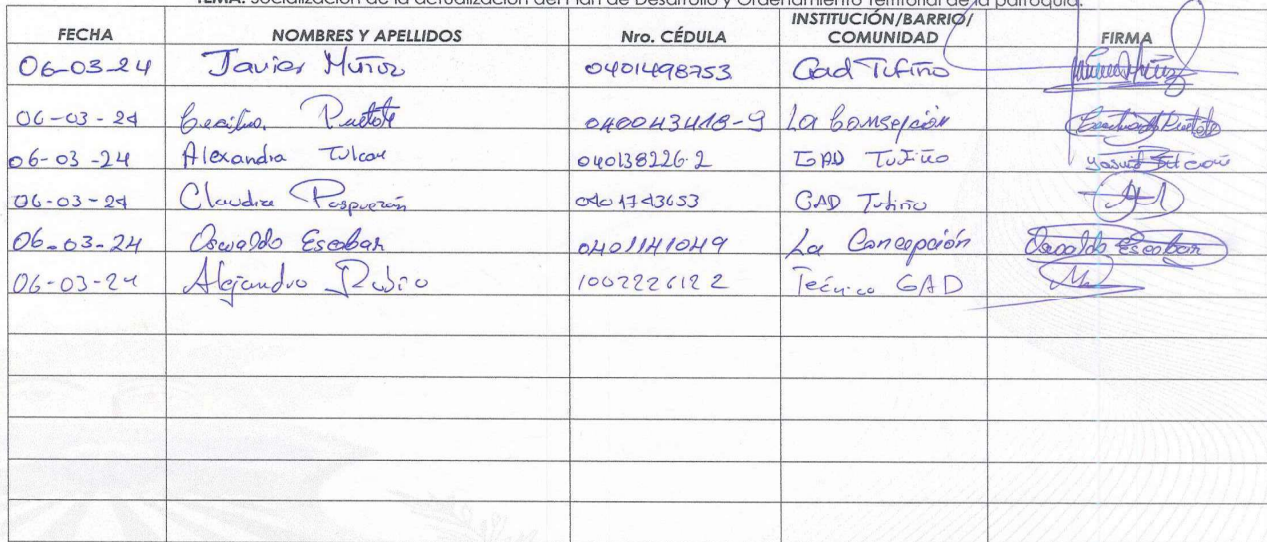 TEMA: Socialización de la actualización del Plan de Desarrollo y Ordenamiento Territorial de la parroquia.
FECHA NOMBRES Y APELLIDOS Nro. CÉDULA INSTITUCIÓN/BARRIO/ COMUNIDAD FIRMA
06-03-24 Javier Muñoz 0401498753 Gad Tufiño
06-03-24 Cecilia 040043418-9 La Concepción
06-03-24 Alexandra Tulcan 040138226-2 GAD Tufiño
06-03-24 Claudia Paspuezán 0401743653 GAD Tufiño
06-03-24 Oswaldo Escobar 0401141049 La Concepción Oswaldo Escobar
06-03-24 Alejandro Rubio 1002226122 Técnico GAD